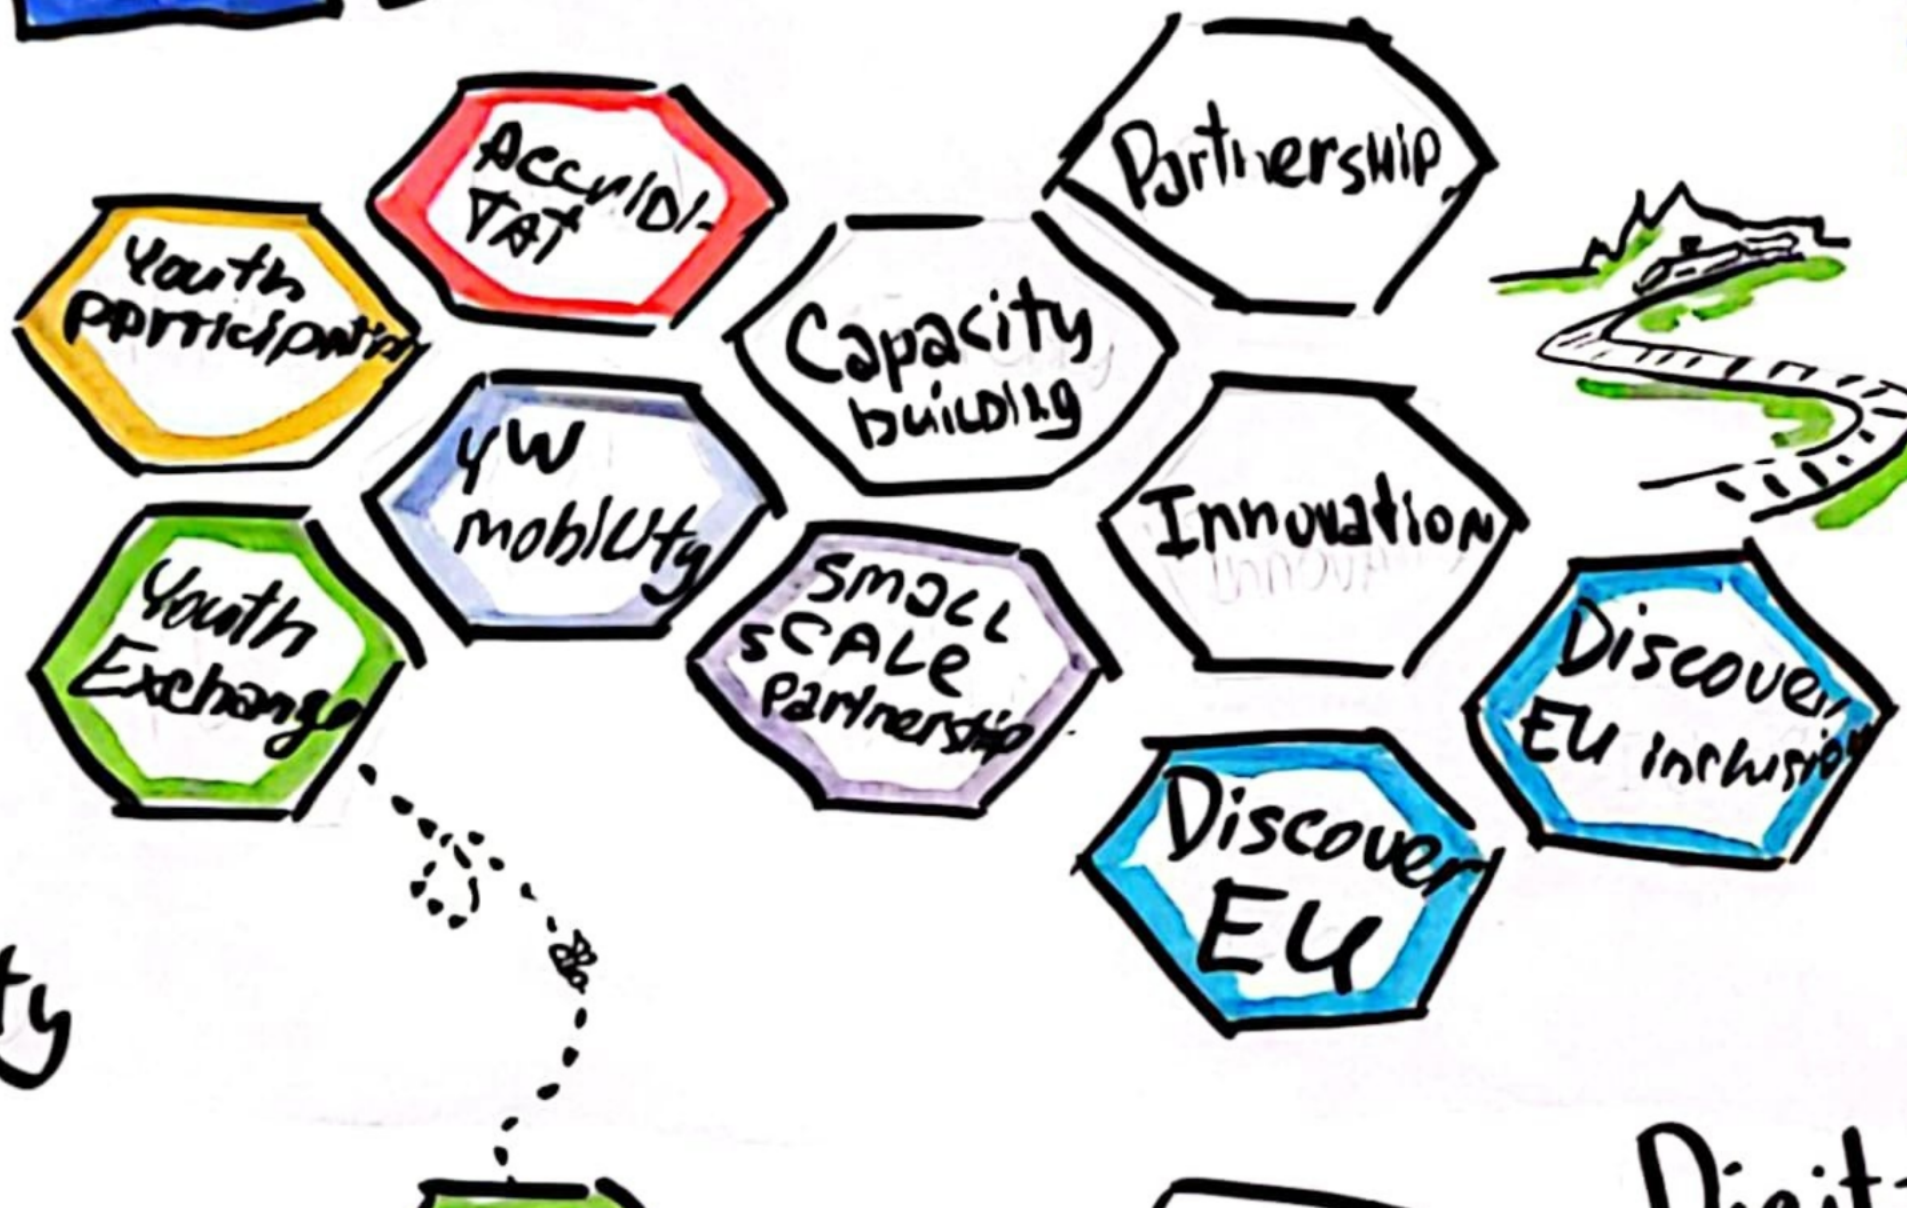 Partnership
Accridi-
tat
Youth
participation
Capacity
building
YW
mobility
Innovation
Youth
Exchange
Small
scale
Partnership
Discover
EU inclusion
Discover
EU
ty
Digit